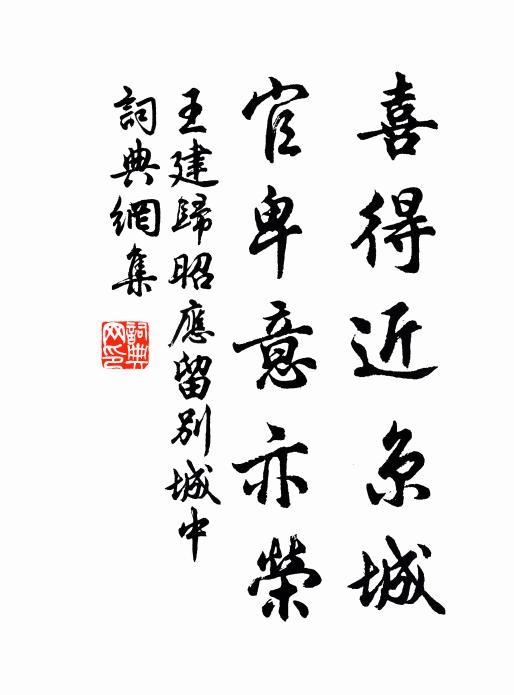 喜得近京城
官卑意亦榮
王建歸昭應留別城中
詞典網集
詞典網印